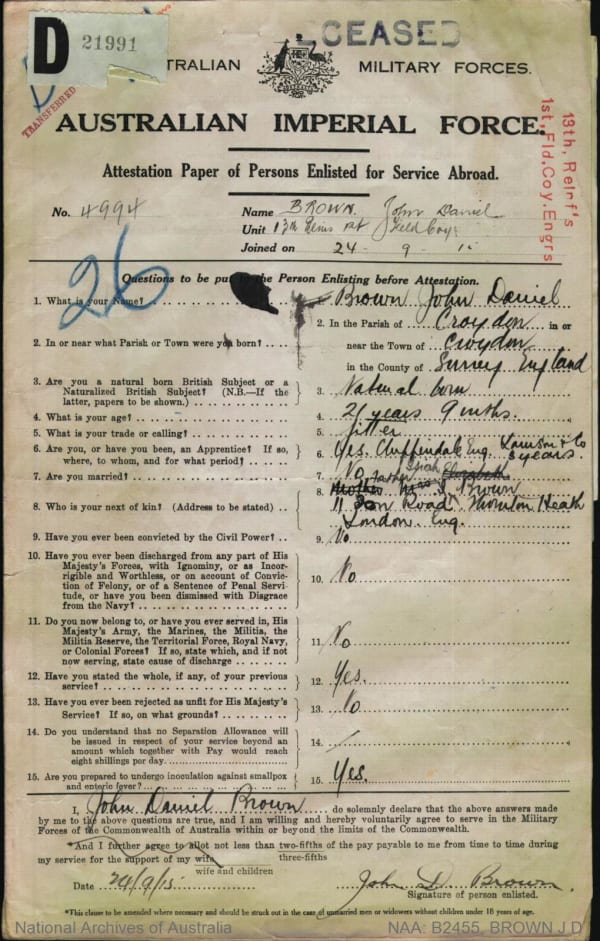 D 21991
CEASED
TRALIAN MILITARY FORCES.
TRANSFERRED
AUSTRALIAN IMPERIAL FORCE.
13th, Reinf's
1st, Fld, Coy, Engrs
Attestation Paper of Persons Enlisted for Service Abroad.
No. 4994 Name BROWN. John Daniel
Unit 13th Reins Field Coy
Joined on 24 - 9 - 15
26
Questions to be put to the Person Enlisting before Attestation.
1. What is your Name? Brown John Daniel
2. In or near what Parish or Town were you born? 2. In the Parish of Croydon in or
near the Town of Croydon
in the County of Surrey England
3. Are you a natural born British Subject or a
Naturalized British Subject? (N.B.—If the
latter, papers to be shown.) 3. Natural born
4. What is your age? 4. 21 years 9 mths.
5. What is your trade or calling? 5. fitter
6. Are you, or have you been, an Apprentice? If so,
where, to whom, and for what period? 6. Yes. Eng. & Co
years.
7. Are you married? 7. No
8. Who is your next of kin? (Address to be stated) 8. Mother Father Mrs Elizabeth Brown
11 Road Thornton Heath
London Eng.
9. Have you ever been convicted by the Civil Power? 9. No
10. Have you ever been discharged from any part of His
Majesty's Forces, with Ignominy, or as Incor-
rigible and Worthless, or on account of Convic-
tion of Felony, or of a Sentence of Penal Servi-
tude, or have you been dismissed with Disgrace
from the Navy? 10. No
11. Do you now belong to, or have you ever served in, His
Majesty's Army, the Marines, the Militia, the
Militia Reserve, the Territorial Force, Royal Navy,
or Colonial Forces? If so, state which, and if not
now serving, state cause of discharge 11. No
12. Have you stated the whole, if any, of your previous
service? 12. Yes.
13. Have you ever been rejected as unfit for His Majesty's
Service? If so, on what grounds? 13. No
14. Do you understand that no Separation Allowance will
be issued in respect of your service beyond an
amount which together with Pay would reach
eight shillings per day. 14. /
15. Are you prepared to undergo inoculation against smallpox
and enteric fever? 15. Yes.
I, John Daniel Brown do solemnly declare that the above answers made
by me to the above questions are true, and I am willing and hereby voluntarily agree to serve in the Military
Forces of the Commonwealth of Australia within or beyond the limits of the Commonwealth.
*And I further agree to allot not less than two-fifths of the pay payable to me from time to time during
three-fifths
my service for the support of my wife
wife and children
Date 24/9/15 John D. Brown.
Signature of person enlisted.
*This clause to be amended where necessary and should be struck out in the case of unmarried men or widowers without children under 16 years of age.
National Archives of Australia NAA: B2455, BROWN J D